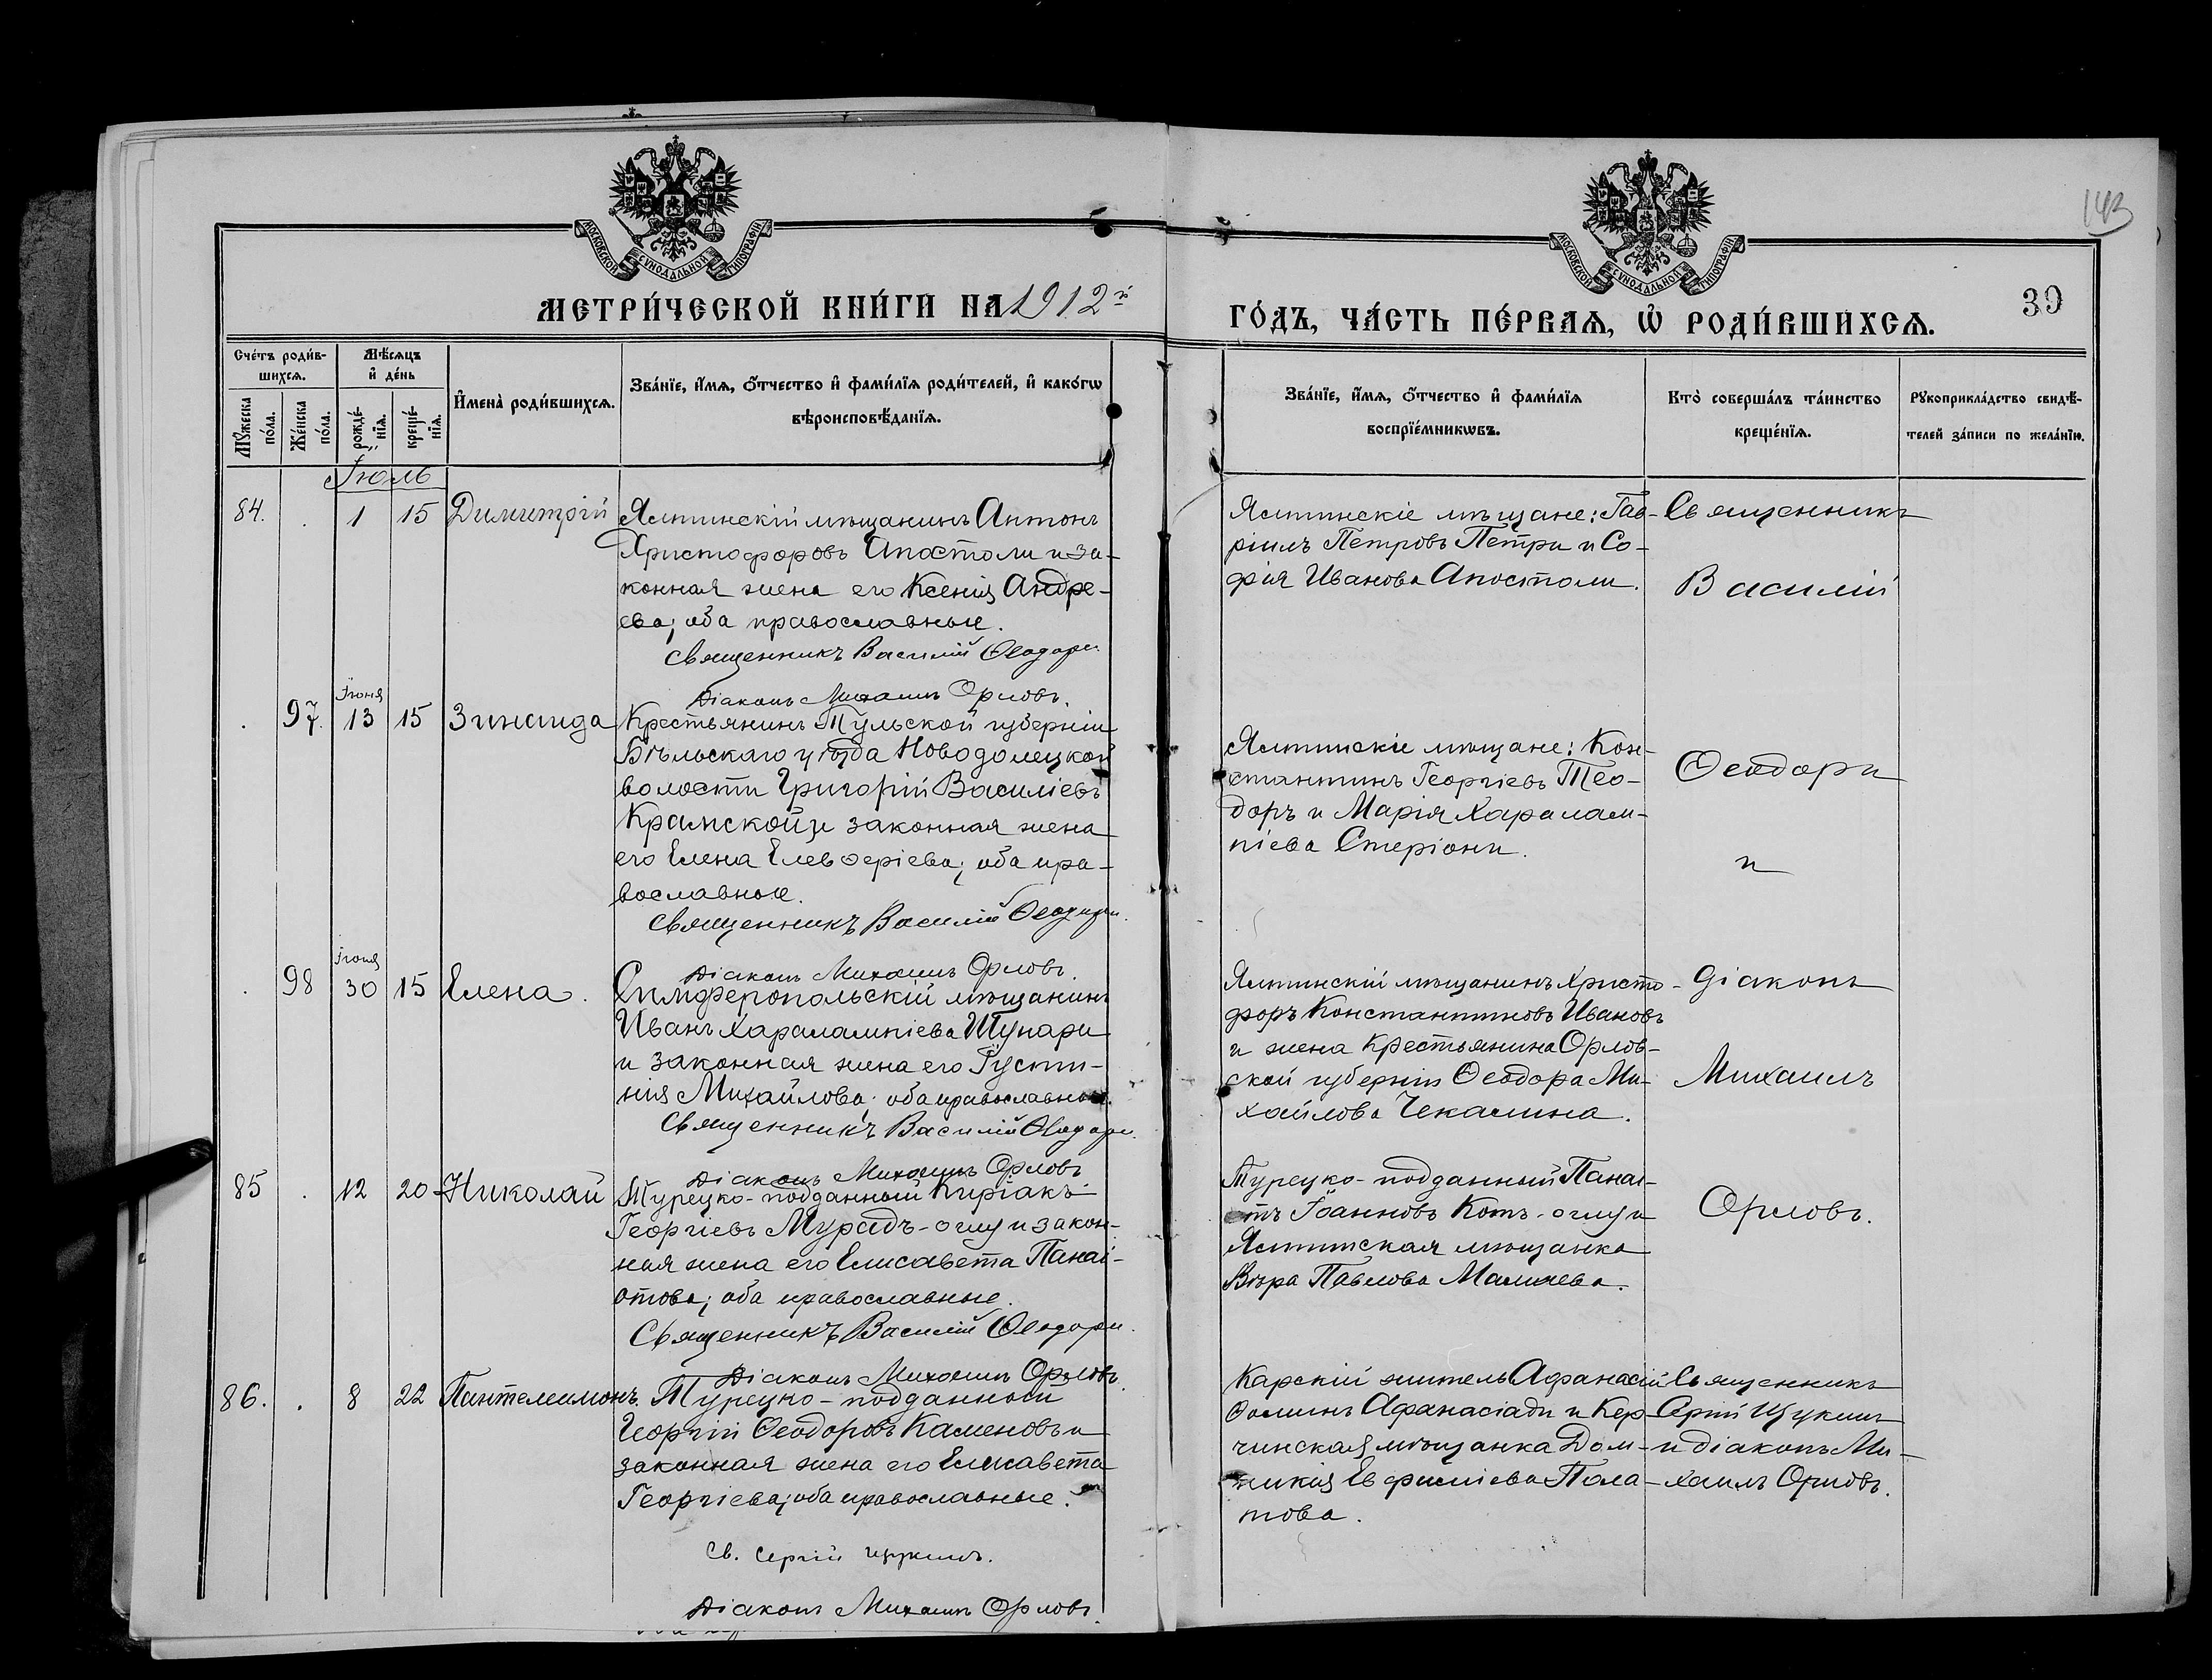 МОСКОВСКОЙ СУНОДАЛЬНОЙ ТИПОГРАФІИ
МОСКОВСКОЙ СУНОДАЛЬНОЙ ТИПОГРАФІИ
143
МЕТРИ́ЧЕСКОЙ КНИ́ГИ НА 1912й
ГО́ДЪ, ЧА́СТЬ ПЕ́РВАѦ, Ѡ РОДИ́ВШИХСѦ.
39
Сче́тъ роди́в-
шихсѧ.
Мѣ́сяцъ
и҆ де́нь
Мꙋ́жеска
по́ла.
Же́нска
по́ла.
рожде́-
нїѧ.
креще́-
нїѧ.
И҆мена̀ роди́вшихсѧ.
Зва́нїе, и҆́мѧ, ѻ҆́тчество и҆ фами́лїѧ роди́телей, и҆ како́гѡ
вѣроисповѣ́данїѧ.
Зва́нїе, и҆́мѧ, ѻ҆́тчество и҆ фами́лїѧ
воспрїе́мникѡвъ.
Кто̀ соверша́лъ та́инство
креще́нїѧ.
Рꙋкоприкла́дство свидѣ́-
телей за́писи по жела́нїю.
Іюль
84. . 1 15 Димитрій
Ялтинскій мѣщанинъ Антонъ
Христофоровъ Апостоли и за-
конная жена его Ксенія Андре-
ева; оба православные.
Священникъ Василій Ѳеодори
Діаконъ Михаилъ Орловъ.
Ялтинскіе мѣщане: Гав-
ріилъ Петровъ Петри и Со-
фія Иванова Апостоли.
Священникъ
Василій
Іюня
. 97. 13 15 Зинаида
Крестьянинъ Тульской губерніи
Бѣльскаго уѣзда Новодолецкой
волости Григорій Василіевъ
Крамской и законная жена
его Елена Елевѳеріева; оба пра-
вославные.
Священникъ Василій Ѳеодори.
Діаконъ Михаилъ Орловъ.
Ялтинскіе мѣщане: Кон-
стантинъ Георгіевъ Тео-
доръ и Марія Харалам-
піева Стеріони.
Ѳеодори
и
Іюня
. 98 30 15 Елена.
Симферопольскій мѣщанинъ
Иванъ Харалампіевъ Шупари
и законная жена его Іусти-
нія Михайлова; оба православные.
Священникъ Василій Ѳеодори.
Діаконъ Михаилъ Орловъ
Ялтинскій мѣщанинъ Христо-
форъ Константиновъ Ивановъ
и жена крестьянина Орлов-
ской губерніи Ѳеодора Ми-
хайлова Чекалина.
Діаконъ
Михаилъ
85 . 12 20 Николай
Турецко-подданный Киріакъ
Георгіевъ Мурадъ-оглу и закон-
ная жена его Елисавета Панаі-
отова; оба православные.
Священникъ Василій Ѳеодори.
Діаконъ Михаилъ Орловъ.
Турецко-подданный Панаі-
отъ Іоанновъ Котъ-оглу и
Ялтинская мѣщанка
Вѣра Павлова Малаева.
Орловъ.
86. . 8 22 Пантелеимонъ.
Турецко-подданный
Георгій Ѳеодоровъ Каменовъ и
законная жена его Елисавета
Георгіева; оба православные.
Св. Сергій Щукинъ.
Діаконъ Михаилъ Орловъ.
Карскій житель Аѳанасій
Ѳоминъ Аѳанасіади и Кер-
чинская мѣщанка Дом-
никія Евфиміева Пала-
това.
Священникъ
Сергій Щукинъ
и діаконъ Ми-
хаилъ Орловъ.